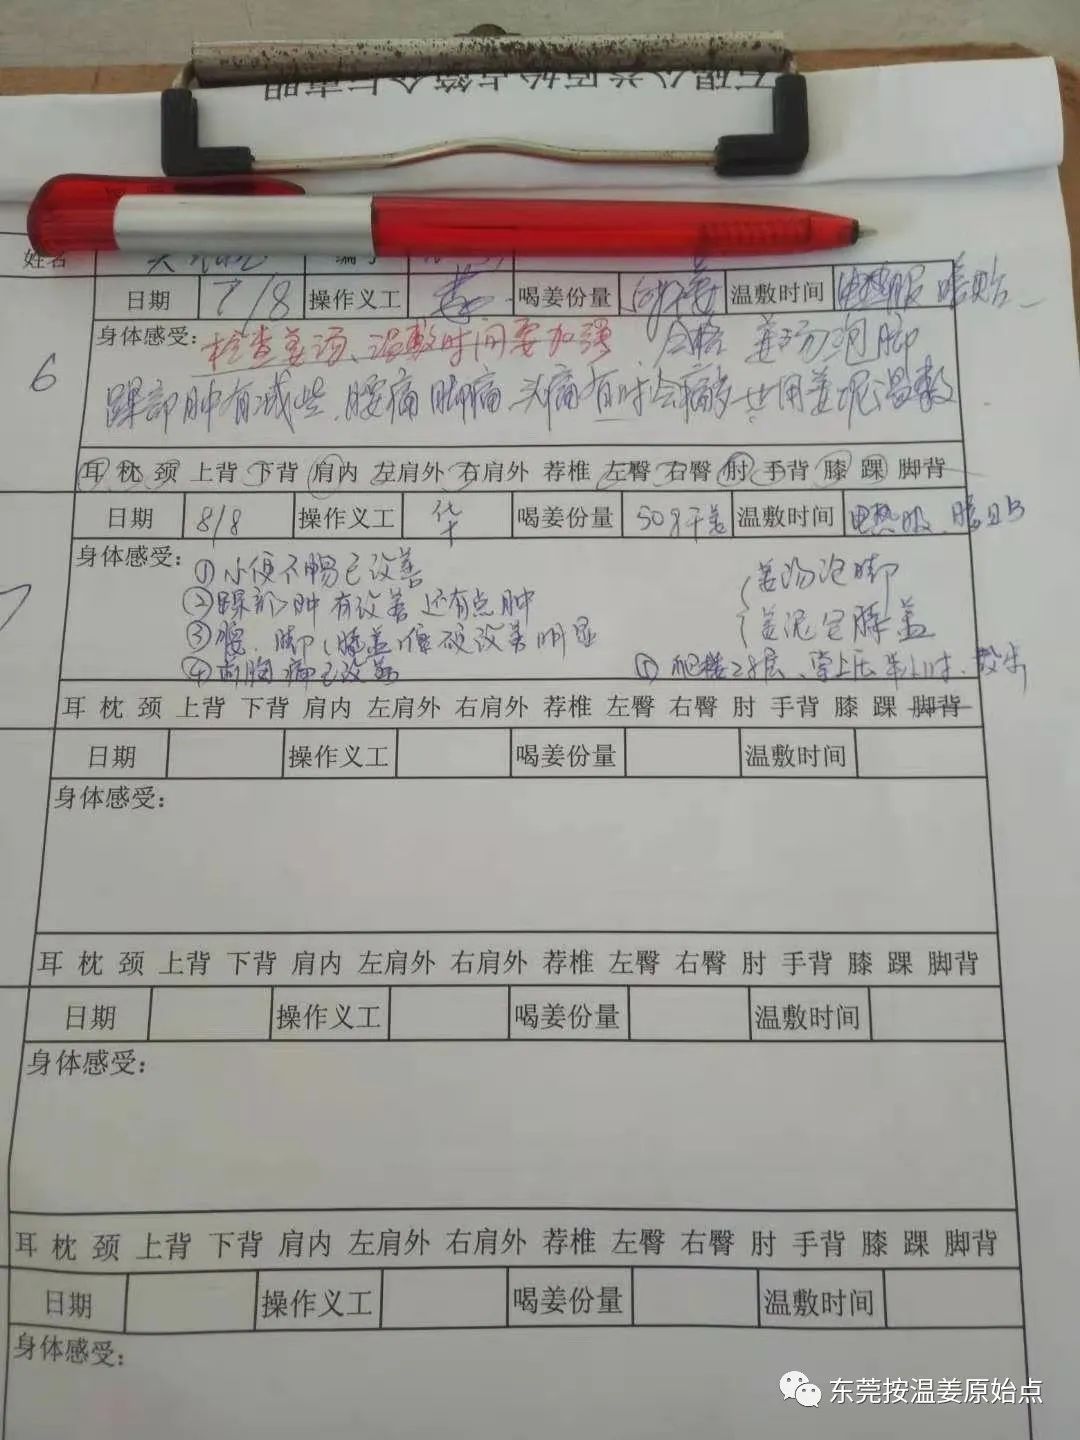 石碣公益原始点简介与声明
姓名 编号
日期 7/8 操作义工 喝姜份量 温敷时间 电热服 暖贴
6
身体感受: 检查姜汤、温敷时间要加强 姜汤泡脚
踝部肿有减些 腰痛 脚痛 头痛 有时会痛 用姜泥温敷
耳 枕 颈 上背 下背 肩内 左肩外 右肩外 荐椎 左臀 右臀 肘 手背 膝 踝 脚背
7
日期 8/8 操作义工 华 喝姜份量 50g干姜 温敷时间 电热服、暖贴
身体感受: ①小便不畅已改善 姜汤泡脚
②踝部肿有改善 还有点肿 姜泥包膝盖
③腰、脚(膝盖)僵硬改善明显
④前胸痛已改善 ⑤爬楼28层、掌上压 散步
耳 枕 颈 上背 下背 肩内 左肩外 右肩外 荐椎 左臀 右臀 肘 手背 膝 踝 脚背
日期 操作义工 喝姜份量 温敷时间
身体感受:
耳 枕 颈 上背 下背 肩内 左肩外 右肩外 荐椎 左臀 右臀 肘 手背 膝 踝 脚背
日期 操作义工 喝姜份量 温敷时间
身体感受:
耳 枕 颈 上背 下背 肩内 左肩外 右肩外 荐椎 左臀 右臀 肘 手背 膝 踝 脚背
日期 操作义工 喝姜份量 温敷时间
身体感受:
东莞按温姜原始点